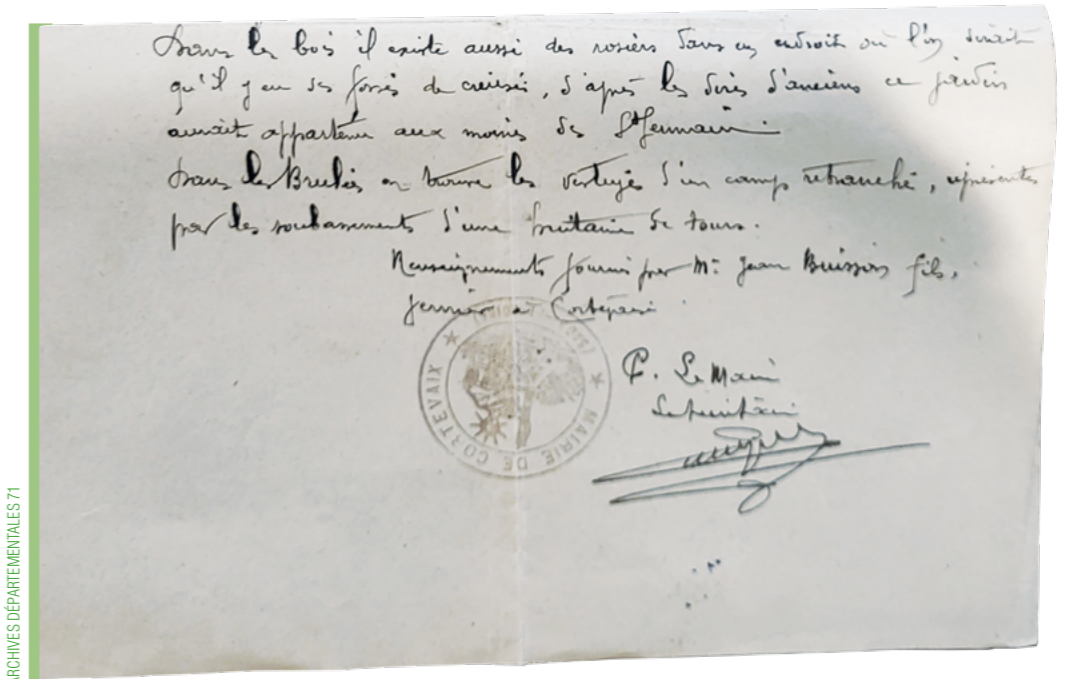 Dans les bois il existe aussi des rosiers dans un endroit où l'on dirait
qu'il y eu des fossés de creusés, d'après les dires d'anciens ce jardin
aurait appartenu aux moines de St Germain.
Dans les Brulées on trouve les vestiges d'un camp retranché, représentés
par les soubassements d'une trentaine de tours.
Renseignements fournis par Mr Jean Buisson fils,
fermier à
P. Le Maire
Le secrétaire
MAIRIE DE CORTEVAIX
ARCHIVES DÉPARTEMENTALES 71